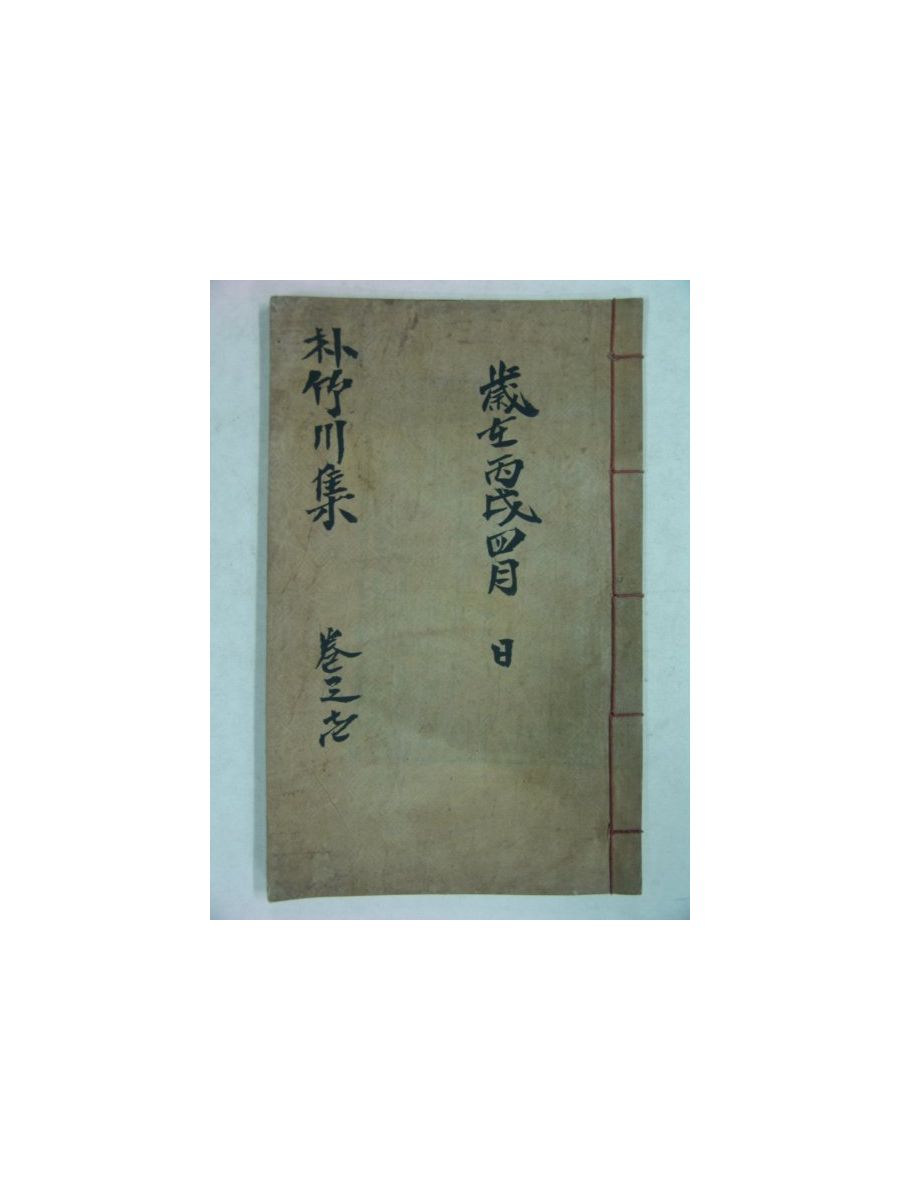 歲在丙戌四月 日
朴竹川集 卷之